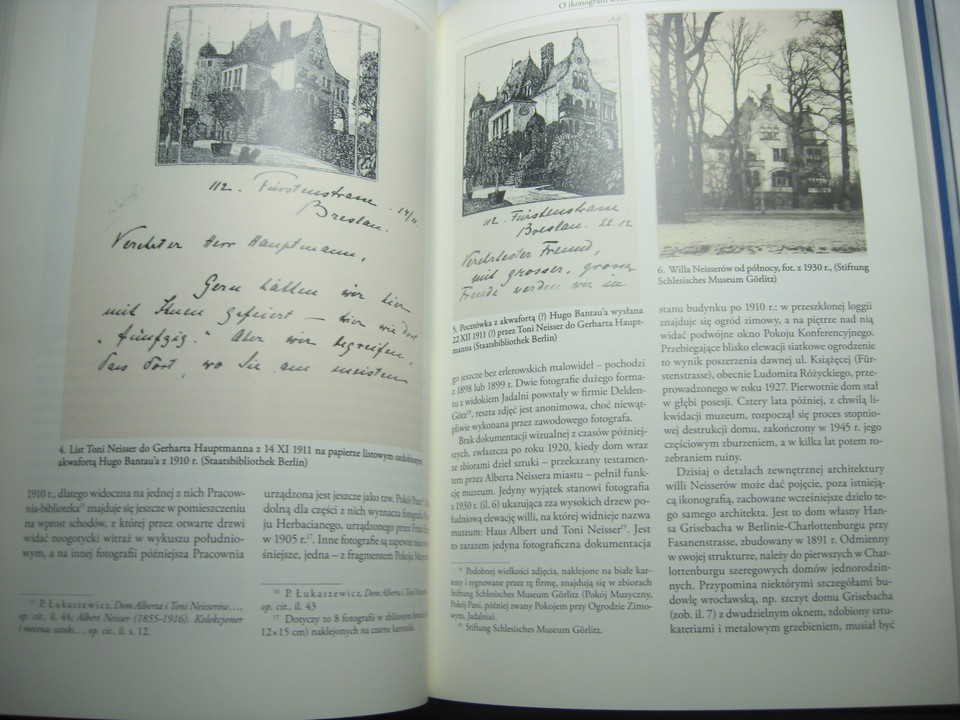 112. Fürstenstrasse. 14/11.
Breslau.
Verehrter Herr Hauptmann,
Gern hätten wir hier
mit Ihnen gefeiert — hier wie dort
"fünfzig". Aber wir begreifen,
dass Dort, wo Sie am meisten
4. List Toni Neisser do Gerharta Hauptmanna z 14 XI 1911 na papierze listowym ozdobionym
akwafortą Hugo Bantau'a z 1910 r. (Staatsbibliothek Berlin)
1910 r., dlatego widoczna na jednej z nich Pracow-
nia-biblioteka¹⁵ znajduje się jeszcze w pomieszczeniu
na wprost schodów, z której przez otwarte drzwi
widać neogotycki witraż w wykuszu południo-
wym, a na innej fotografii późniejsza Pracownia
urządzona jest jeszcze jako tzw. Pokój Pani¹⁶.
dolną dla części z nich wyznacza fotografia
ju Herbacianego, urządzonego przez
w 1905 r.¹⁷. Inne fotografie są zapewne
śniejsze, jedna – z fragmentem Pokoju
¹⁵ P. Łukaszewicz, Dom Alberta i Toni Neisserów…,
op. cit., il. 44; Albert Neisser (1855-1916). Kolekcjoner
i mecenas sztuki…, op. cit., il. s. 12.
¹⁶ P. Łukaszewicz, Dom Alberta i Toni
op. cit., il. 43
¹⁷ Dotyczy to 8 fotografii w zbliżonym
12×15 cm) naklejonych na czarne kartoniki.
O ikonografii
112. Fürstenstrasse.
Breslau. 22.12
Verehrtester Freund,
mit grosser, grosser
Freude werden wir
5. Pocztówka z akwafortą (?) Hugo Bantau'a wysłana
22 XII 1911 (?) przez Toni Neisser do Gerharta Haupt-
manna (Staatsbibliothek Berlin)
6. Willa Neisserów od północy, fot. z 1930 r., (Stiftung
Schlesisches Museum Görlitz)
go jeszcze bez erlerowskich malowideł – pochodzi
z 1898 lub 1899 r. Dwie fotografie dużego forma-
tu z widokiem Jadalni powstały w firmie Delden-
Götz¹⁸, reszta zdjęć jest anonimowa, choć niewąt-
pliwie wykonana przez zawodowego fotografa.
Brak dokumentacji wizualnej z czasów później-
szych, zwłaszcza po roku 1920, kiedy dom wraz
ze zbiorami dzieł sztuki – przekazany testamen-
tem przez Alberta Neissera miastu – pełnił funk-
cję muzeum. Jedyny wyjątek stanowi fotografia
z 1930 r. (il. 6) ukazująca zza wysokich drzew po-
łudniową elewację willi, na której widnieje nazwa
muzeum: Haus Albert und Toni Neisser¹⁹. Jest
to zarazem jedyna fotograficzna dokumentacja
¹⁸ Podobnej wielkości zdjęcia, naklejone na białe kar-
tony i sygnowane przez tę firmę, znajdują się w zbiorach
Stiftung Schlesisches Museum Görlitz (Pokój Muzyczny,
Pokój Pani, później zwany Pokojem przy Ogrodzie Zimo-
wym, Jadalnia).
¹⁹ Stiftung Schlesisches Museum Görlitz.
stanu budynku po 1910 r.: w przeszklonej loggii
znajduje się ogród zimowy, a na piętrze nad nią
widać podwójne okno Pokoju Konferencyjnego.
Przebiegające blisko elewacji siatkowe ogrodzenie
to wynik poszerzenia dawnej ul. Książęcej (Für-
stenstrasse), obecnie Ludomira Różyckiego, prze-
prowadzonego w roku 1927. Pierwotnie dom stał
w głębi posesji. Cztery lata później, z chwilą li-
kwidacji muzeum, rozpoczął się proces stopnio-
wej destrukcji domu, zakończony w 1945 r. jego
częściowym zburzeniem, a w kilka lat potem ro-
zebraniem ruiny.
Dzisiaj o detalach zewnętrznej architektury
willi Neisserów może dać pojęcie, poza istnieją-
cą ikonografią, zachowane wcześniejsze dzieło te-
go samego architekta. Jest to dom własny Han-
sa Grisebacha w Berlinie-Charlottenburgu przy
Fasanenstrasse, zbudowany w 1891 r. Odmienny
w swojej strukturze, należy do pierwszych w Char-
lottenburgu szeregowych domów jednorodzin-
nych. Przypomina niektórymi szczegółami bu-
dowlę wrocławską, np. szczyt domu Grisebacha
(zob. il. 7) z dwudzielnym oknem, zdobiony sztu-
kateriami i metalowym grzebieniem, musiał być